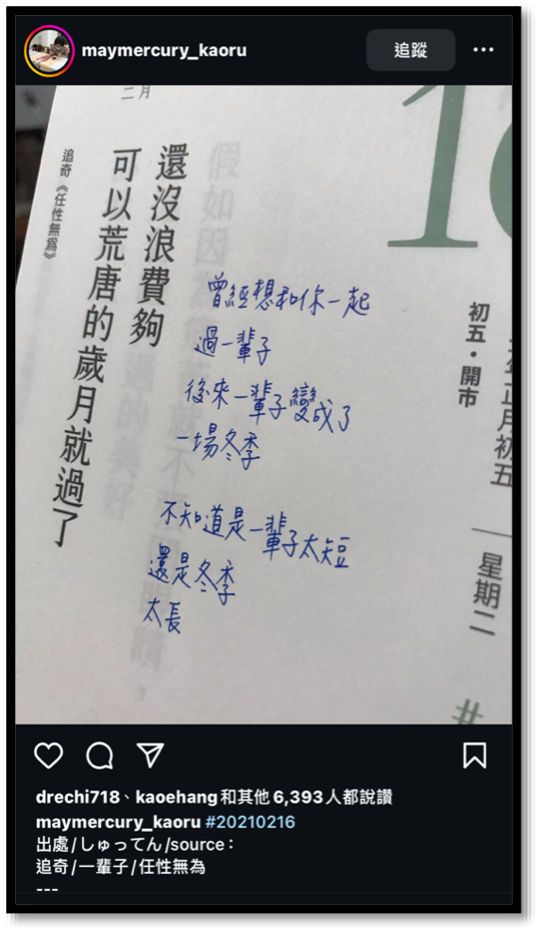 maymercury_kaoru
追蹤
二月
還沒浪費夠
可以荒唐的歲月就過了
追奇《任性無為》
曾經想和你一起
過一輩子
後來一輩子變成了
一場冬季
不知道是一輩子太短
還是冬季
太長
初五・開市
年正月初五
星期二
#
drechi718、kaoehang和其他6,393人都說讚
maymercury_kaoru #20210216
出處/しゅってん/source：
追奇/一輩子/任性無為
---